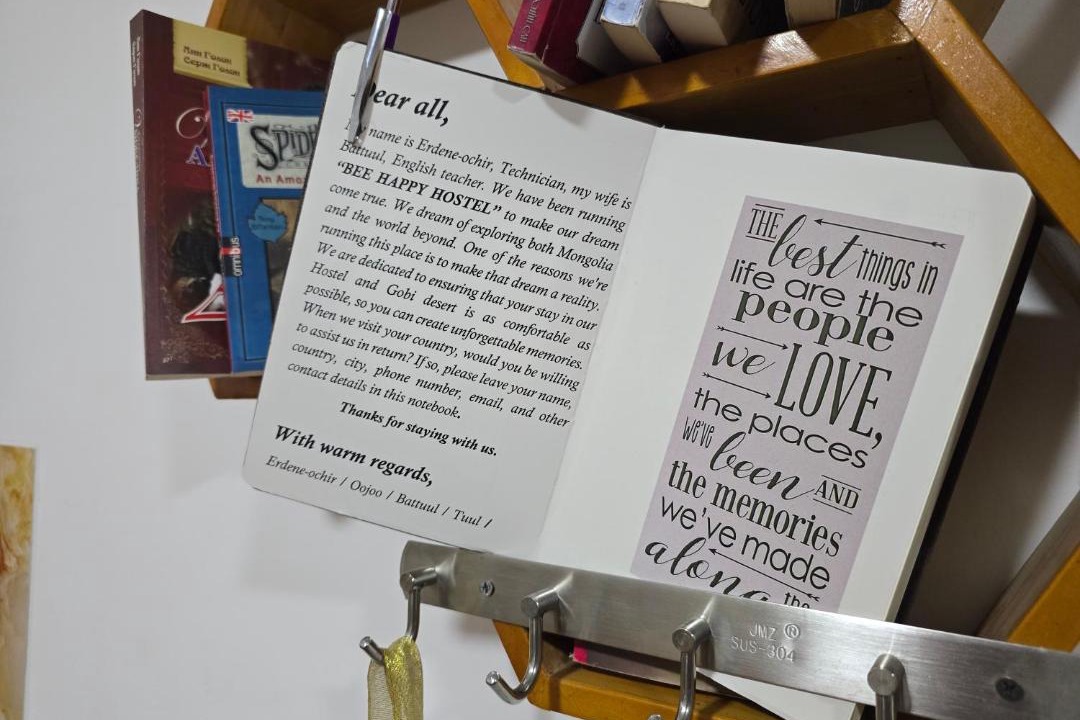 Анн Голон
Серж Голон
An Amaz
omnibus
Dear all,
name is Erdene-ochir, Technician, my wife is
Battuul, English teacher. We have been running
“BEE HAPPY HOSTEL” to make our dream
come true. We dream of exploring both Mongolia
and the world beyond. One of the reasons we're
running this place is to make that dream a reality.
We are dedicated to ensuring that your stay in our
Hostel and Gobi desert is as comfortable as
possible, so you can create unforgettable memories.
When we visit your country, would you be willing
to assist us in return? If so, please leave your name,
country, city, phone number, email, and other
contact details in this notebook.
Thanks for staying with us.
With warm regards,
Erdene-ochir / Oojoo / Battuul / Tuul /
THE
best things in
life are the
people
we LOVE,
the places
we've been AND
the memories
we've made
along the
JMZ ®
SUS-304